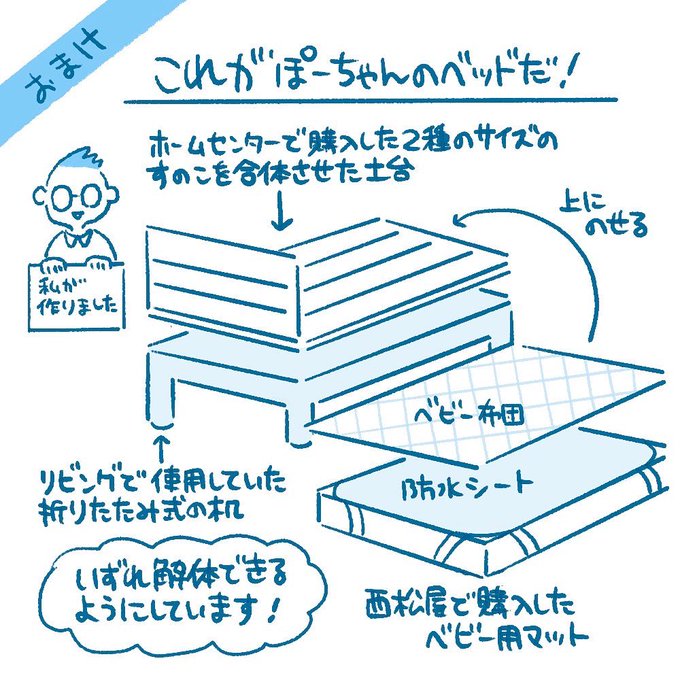 おまけ
これがぽーちゃんのベッドだ！
ホームセンターで購入した2種のサイズの
すのこを合体させた土台
私が
作りました
上に
のせる
ベビー布団
防水シート
リビングで使用していた
折りたたみ式の机
いずれ解体できる
ようにしています！
西松屋で購入した
ベビー用マット